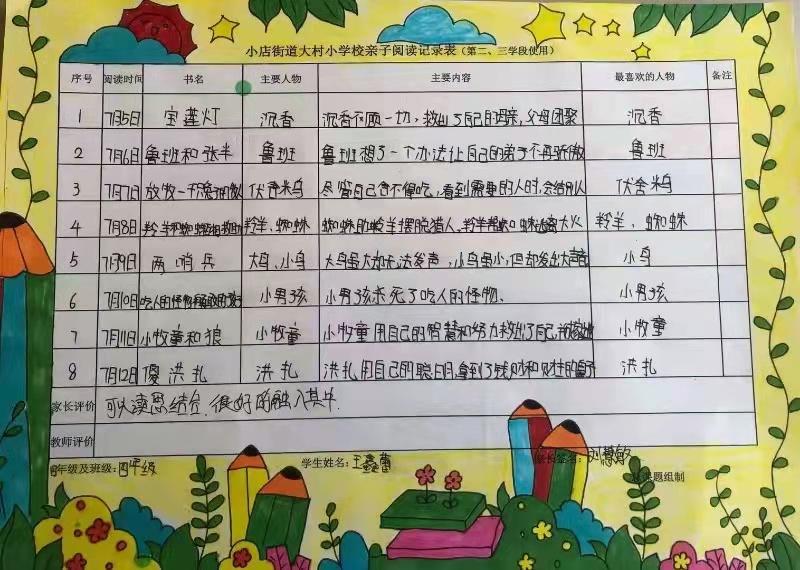 小店街道大村小学校亲子阅读记录表（第二、三学段使用）
序号 阅读时间 书名 主要人物 主要内容 最喜欢的人物 备注
1 7月5日 宝莲灯 沉香 沉香不顾一切，救出了自己的母亲，父母团聚 沉香
2 7月6日 鲁班和张半 鲁班 鲁班想了一个办法让自己的弟子不再骄傲 鲁班
3 7月7日 放牧一千 尽管自己舍不得吃，看到需要的人时，会给别人
4 7月8日 羚羊和蜘蛛 羚羊、蜘蛛 蜘蛛助羚羊摆脱猎人，羚羊帮蜘蛛逃离大火 羚羊、蜘蛛
5 7月9日 两哨兵 大鸟、小鸟 大鸟虽大却无法发声，小鸟虽小，但却发出大声音 小鸟
6 7月10日 吃人的怪物 小男孩 小男孩杀死了吃人的怪物、 小男孩
7 7月11日 小牧童和狼 小牧童 小牧童用自己的智慧和努力救出了自己 小牧童
8 7月12日 傻洪扎 洪扎 洪扎用自己的聪明，拿到了钱财和财主的 洪扎
家长评价 可以读思结合，很好的融入其中.
教师评价
年级及班级：四年级 学生姓名：王 家长签名：刘慧敏
课题组制